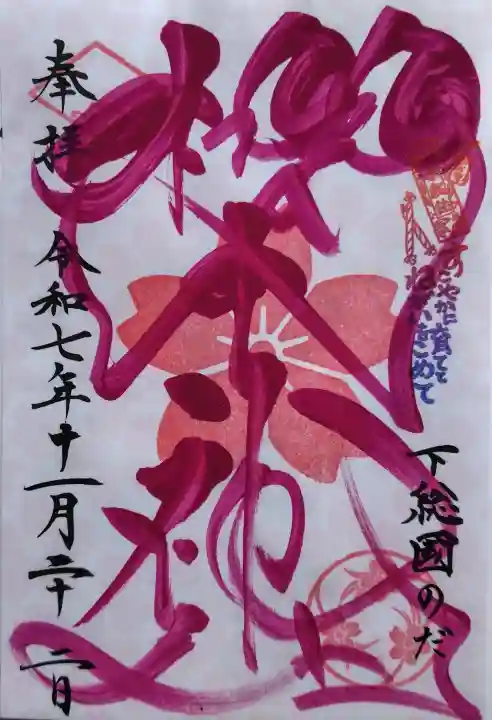 下総國のだ
すこやかに育てて
ねがいをこめて
櫻木神社
奉拝
令和七年十一月二十二日